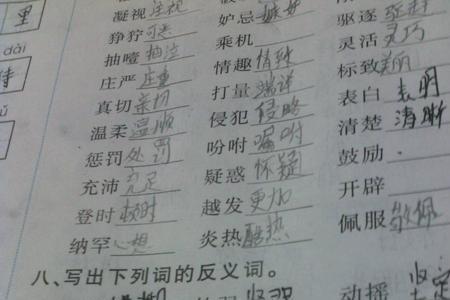 里
凝视 注视 妒忌 嫉妒 驱逐 驱赶
狰狞 可 乘机 灵活 灵巧
抽噎 抽泣 情趣 情致 标致 美丽
dài
庄严 庄重 打量 端详 表白 表明
真切 亲切 侵犯 侵略 清楚 清晰
温柔 温顺 吩咐 嘱咐 鼓励
惩罚 处罚 疑惑 怀疑 开辟
充沛 充足 越发 更加 佩服 敬佩
登时 顿时 炎热 酷热
纳罕
八、写出下列词的反义词。
坚强 动摇 坚定